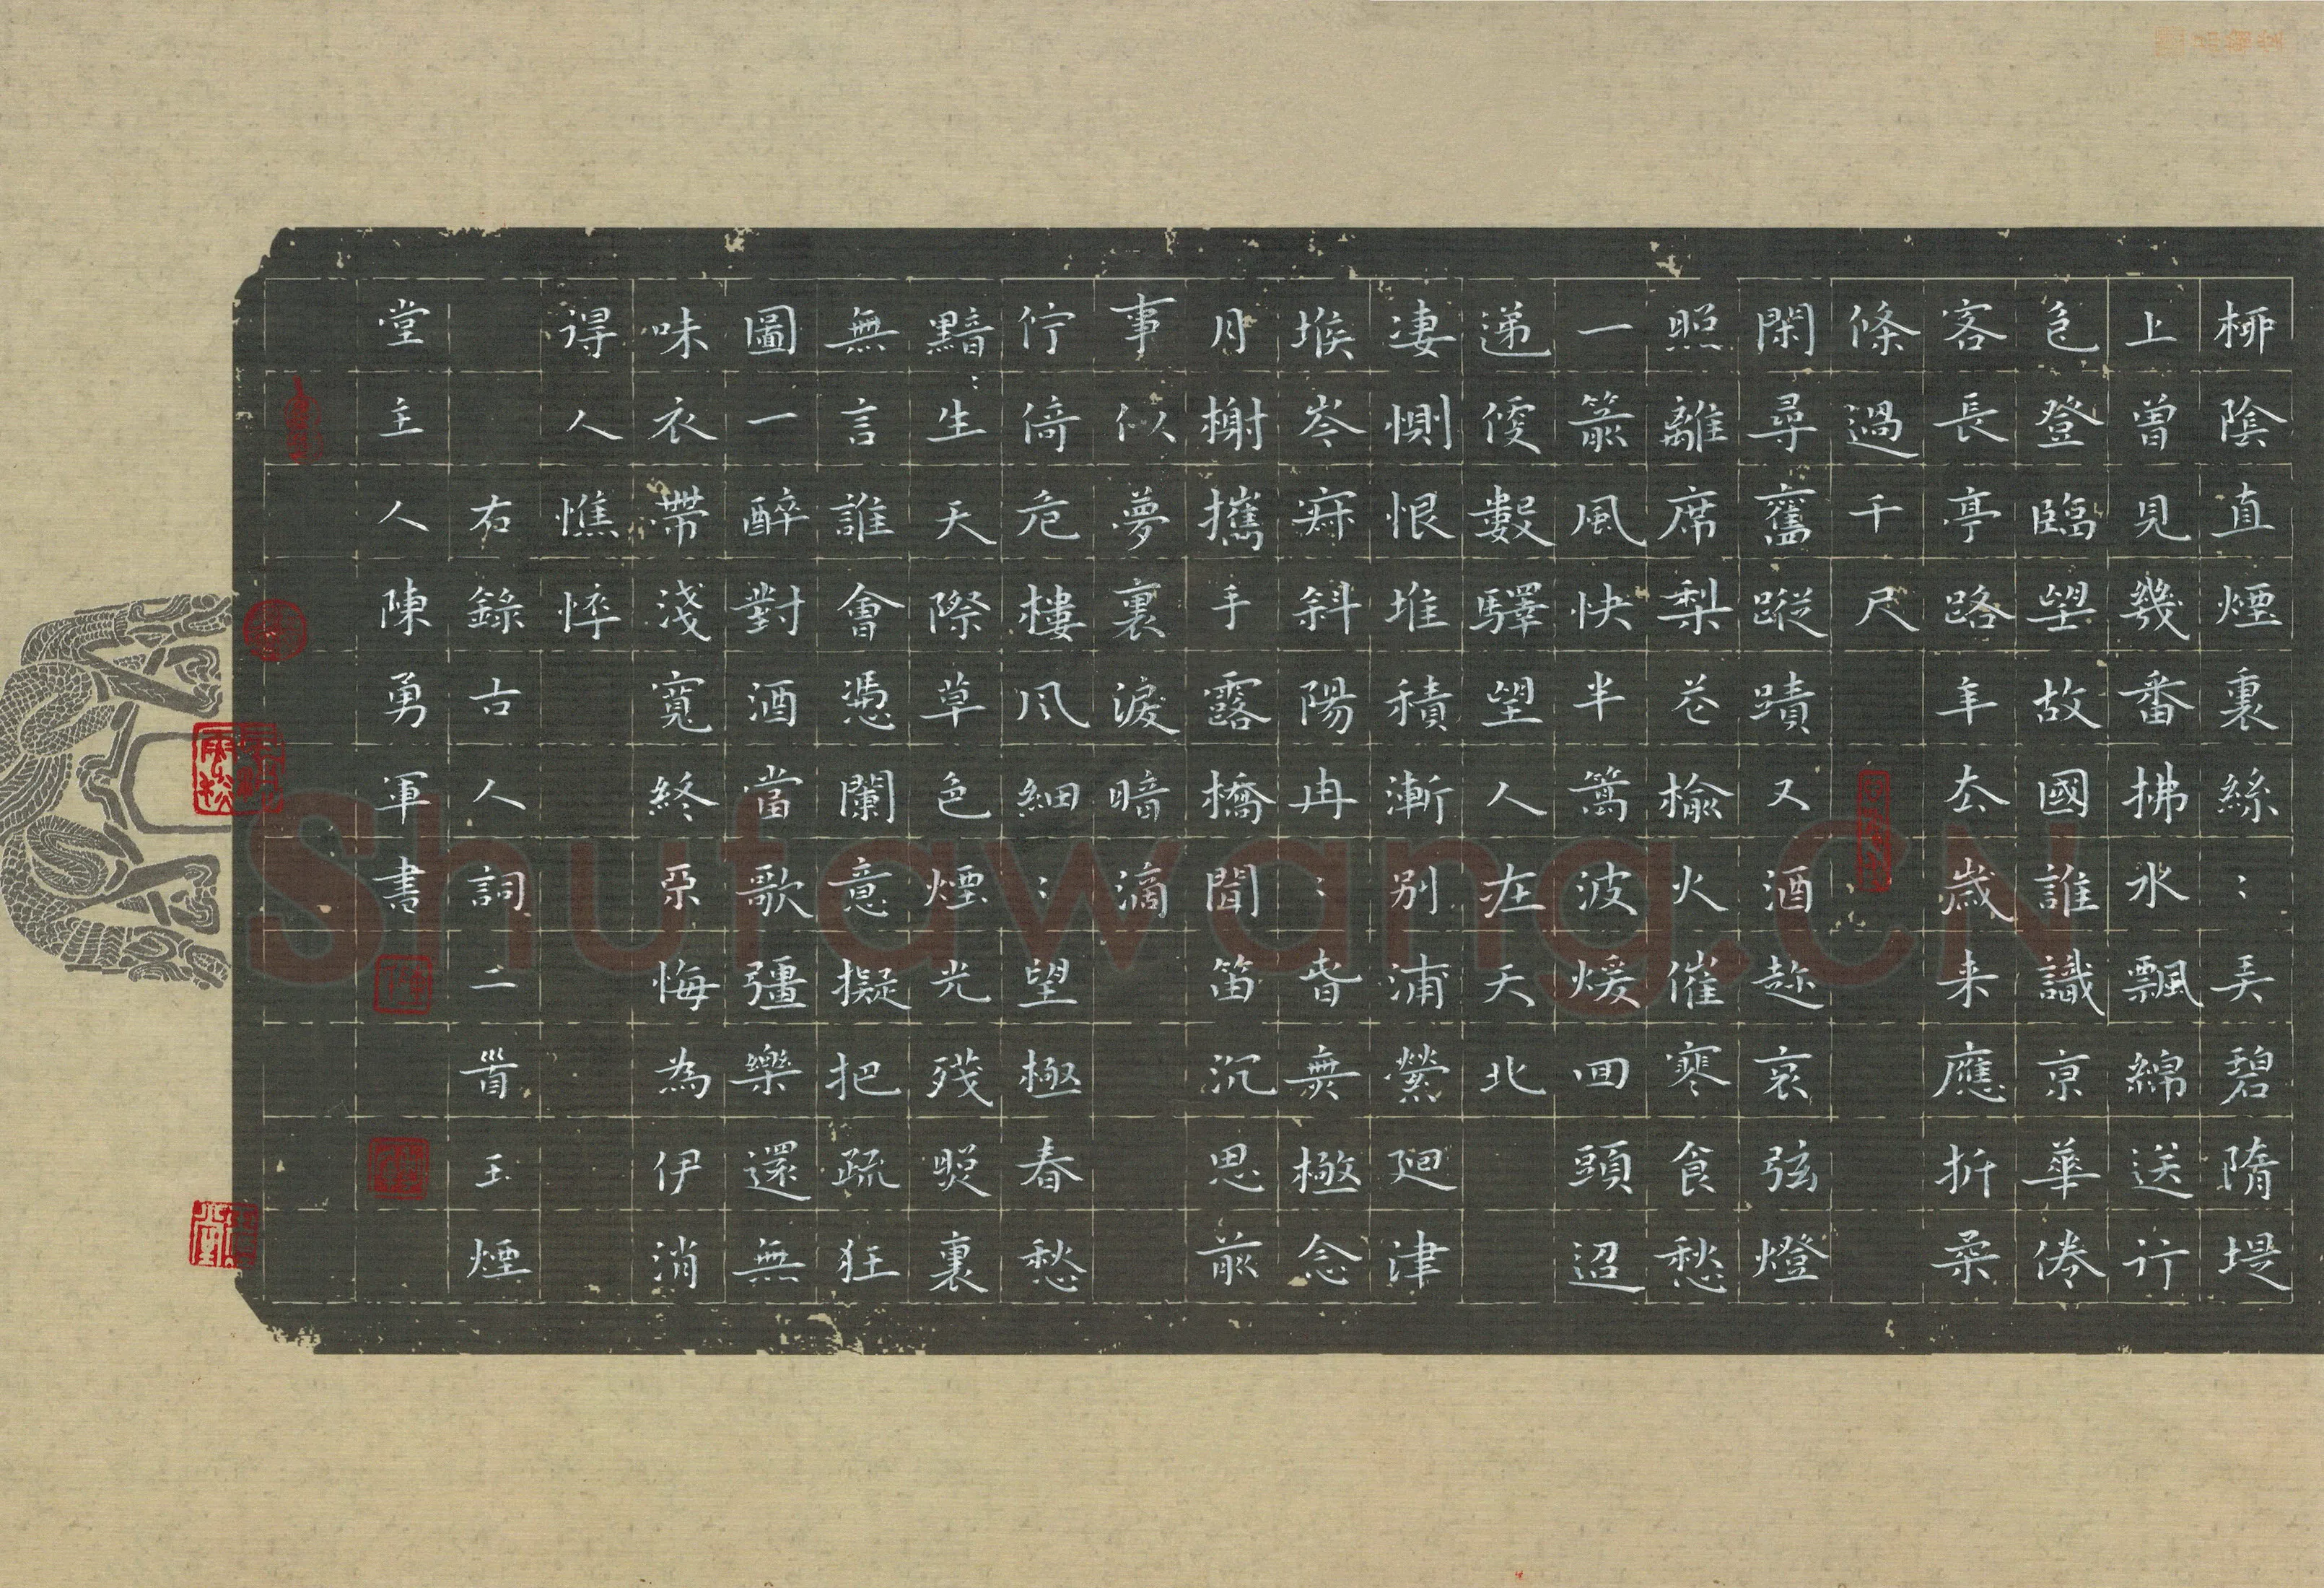 柳陰直煙裏絲〻弄碧隋堤
上曾見幾番拂水飄綿送行
色登臨望故國誰識京華倦
客長亭路年去歲来應折柔
條過千尺
閑尋舊蹤蹟又酒趂哀弦燈
照離席梨花榆火催寒食愁
一箭風快半篙波煖回頭迢
递便數驛望人在天北
凄惻恨堆積漸別浦縈迴津
堠岑寂斜陽冉〻春無極念
月榭攜手露橋聞笛沉思前
事似夢裏淚暗滴
佇倚危樓風細〻望極春愁
黯〻生天際草色煙光殘照裏
無言誰會憑闌意擬把疏狂
圖一醉對酒當歌彊樂還無
味衣帶淺寬終不悔為伊消
得人憔悴
右錄古人詞二首玉煙
堂主人陳勇軍書
Shutawang.CN